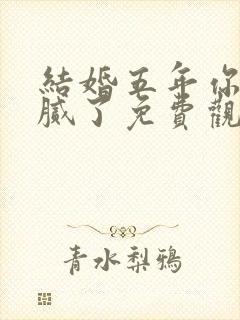 結婚五年你
膩了免費觀
青水梨鴉